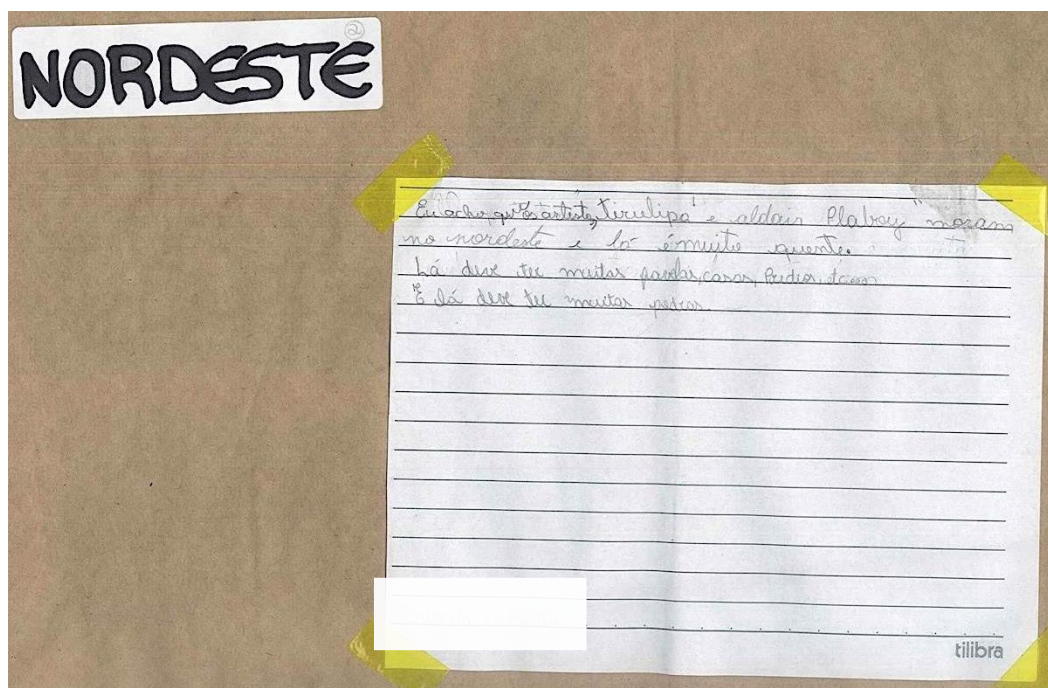 NORDESTE
2
Eu acho, que os artista, "tirulipa e aldair Plaboy" moram
no nordeste e lá é muito quente.
Lá deve ter muitas favelas, casas, Predios,
E lá deve ter muitas pedras.
tilibra